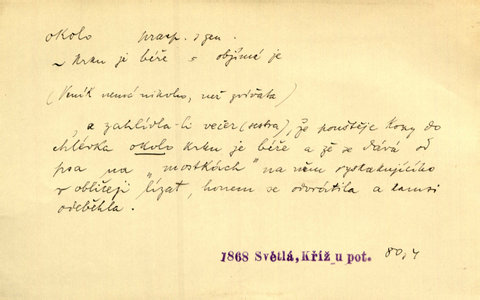 okolo praep. s gen.
~ krku je béře = objímá je
(Veník nemá nikoho, než zvířata)
„ a zahlídla-li večer (sestra), že pouštěje kozy do
chlévka okolo krku je béře a že se dává od
psa na „mostkách" na něm vyskakujícího
v obličeji lízat, honem se odvrátila a
odeběhla.
1868 Světlá, Kříž u pot. 80,4